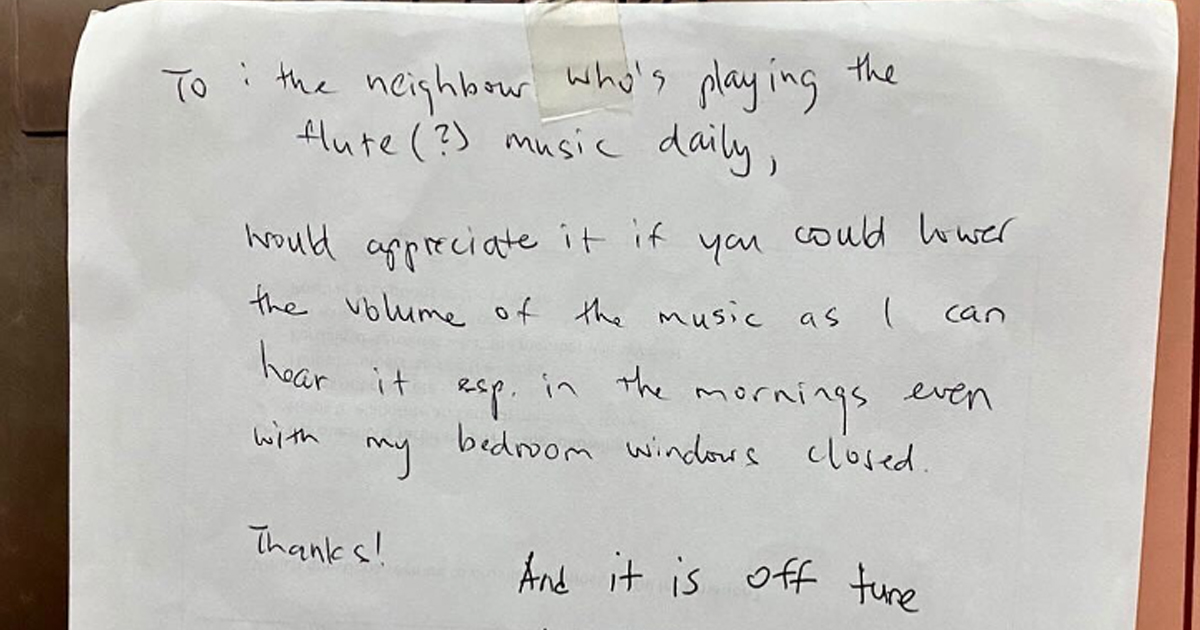 To : the neighbour who's playing the
flute (?) music daily,
would appreciate it if you could lower
the volume of the music as I can
hear it esp. in the mornings even
with my bedroom windows closed.
Thanks!
And it is off tune